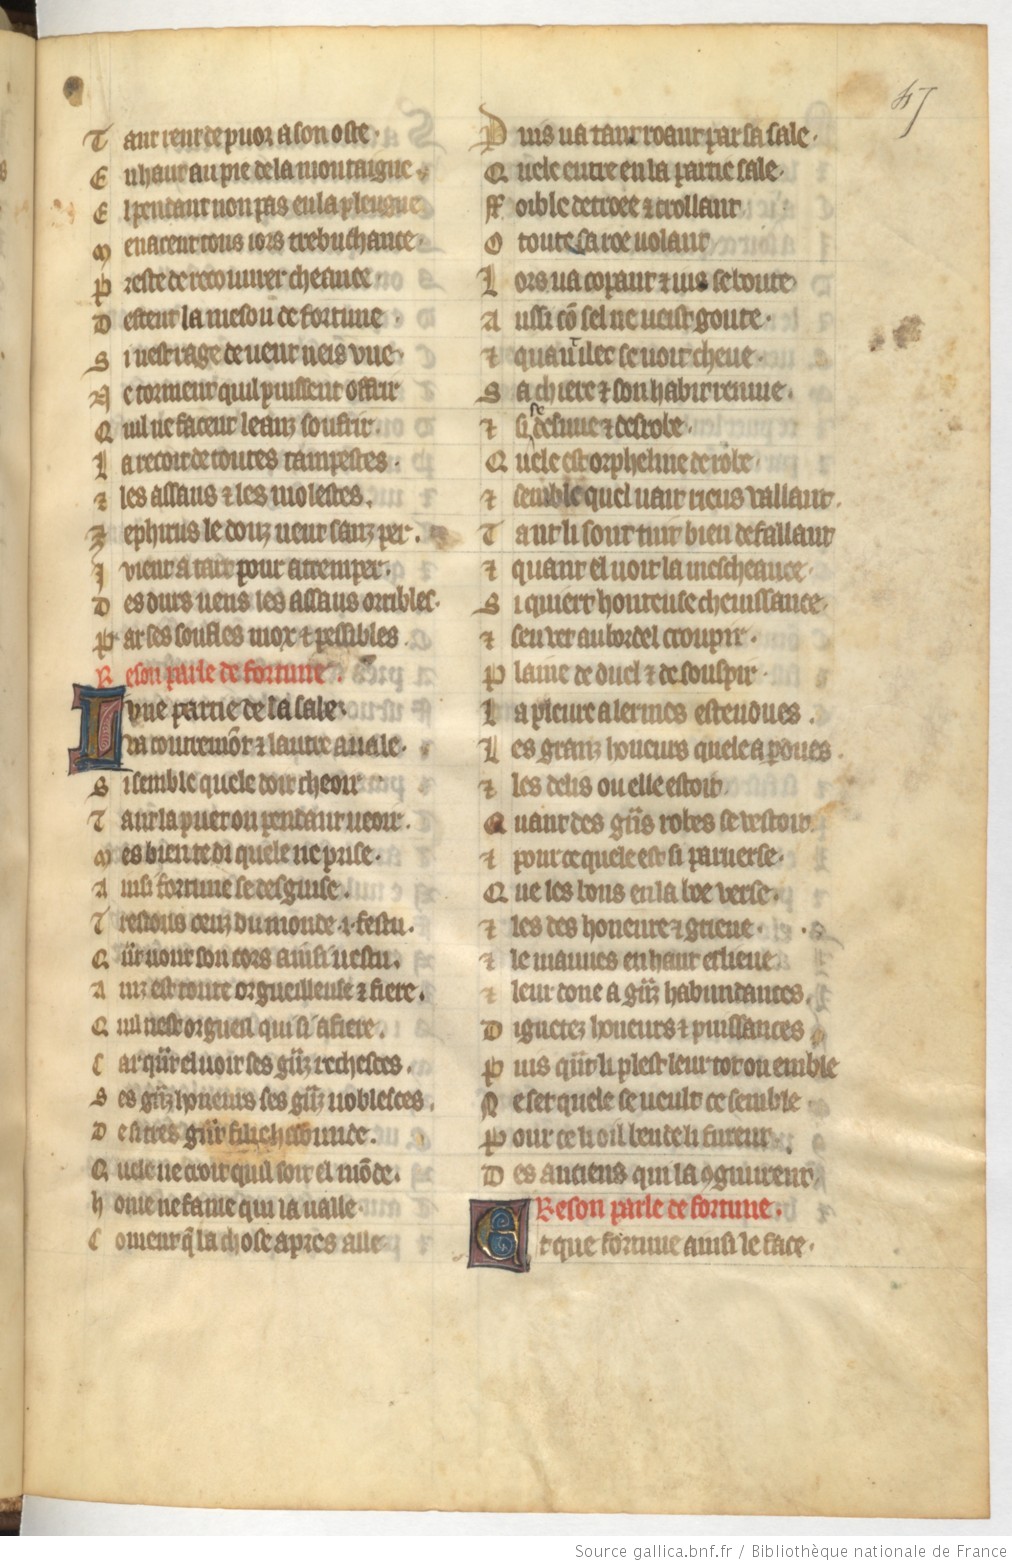 47
Tant rent de puor a son oste
En haut au pie de la montaigne
El pendant non pas en la plengne
Menacent tous iors trebuchance
Preste de recouurer cheance
Descent la meson de fortune
Si nest rage de uent neis vne
Ne torment quil puissent offrir
Quil ne facent leanz souffrir
La recoit de toutes tampestes
⁊ les assaus ⁊ les molestes
Zephirus le douz uent sanz per
I vient a tart pour atremper
Des durs uens les assaus orribles
Par ses soufles moz ⁊ pesibles
Reson parle de fortune
Lune partie de la sale
Va contremōt ⁊ lautre auale
Si semble quele doit cheoir
Tant la puet on pendant ueoir
Mes bien te di quele ne prise
Ainsi fortune se desguise
Trestous ceuz du monde .i. festu
Qūt uoit son cors ainsi uestu
Ainz est toute orgueilleuse ⁊ fiere
Quil nest orgueil qui si afiere
Car qūt el uoit ses gūz richesces
Ses gūz honeurs ses gūz noblesces
De si tres gūt
Quele ne croit quil soit el mōde
Home ne fame qui la ualle
Coment q̄ la chose apres alle
Puis ua tant roant par sa sale
Quele entre en la partie sale
Foible decroee ⁊ crollant
O toute sa roe uolant
Lors ua copant ⁊ ius se boute
Aussi cō sel ne ueist goute
⁊ quant ilec se uoit cheue
Sa chiere ⁊ son habit remue
⁊ si se desnue ⁊ desrobe
Quele est orpheline de robe
⁊ semble quel nait riens vallant
Tant li sont tuit bien defallant
⁊ quant el uoit la mescheance
Si quiert honteuse cheuissance
⁊ sen vet au bordel croupir
Plaine de duel ⁊ de souspir
La pleure a lermes estendues
Les granz honeurs quele a ꝑdues
⁊ les delis ou elle estoit
Quant des gūs robes se vestoit
⁊ pour ce quele est si paruerse
Que les bons en la boe verse
⁊ les des honeure ⁊ grieue
⁊ le mauues en haut eslieue
⁊ leur done a gūz habundances
Dignetez honeurs ⁊ puissances
Puis qūt li plest leur tot ou emble
Ne set quele se ueult ce semble
Pour ce li oil bende li furent
Des anciens qui la ꝯgnurent
Reson parle de fortune
Et que fortune ainsi le face
Source gallica.bnf.fr / Bibliothèque nationale de France